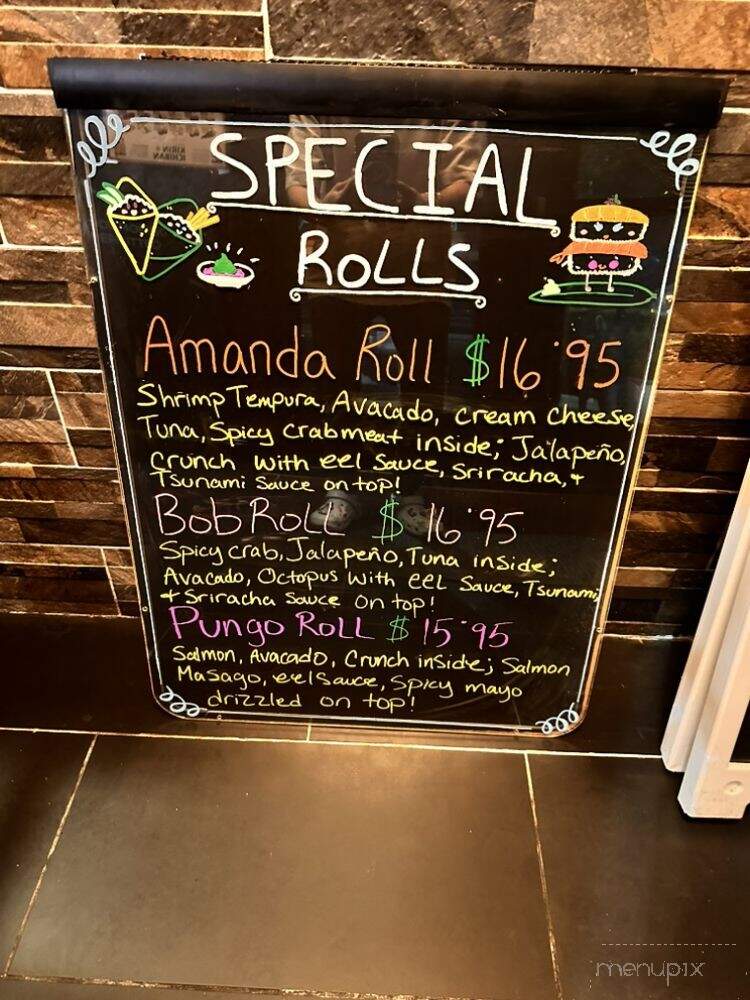 SPECIAL
ROLLS
Amanda Roll $16.95
Shrimp Tempura, Avacado, cream cheese,
Tuna, Spicy crabmeat inside; Jalapeño,
Crunch with eel Sauce, Sriracha, +
Tsunami Sauce on top!
Bob Roll $16.95
Spicy crab, Jalapeño, Tuna inside;
Avacado, Octopus with eel Sauce, Tsunami,
+ Sriracha Sauce on top!
Pungo Roll $15.95
Salmon, Avacado, Crunch inside; Salmon
Masago, eel sauce, Spicy mayo
drizzled on top!
menupix